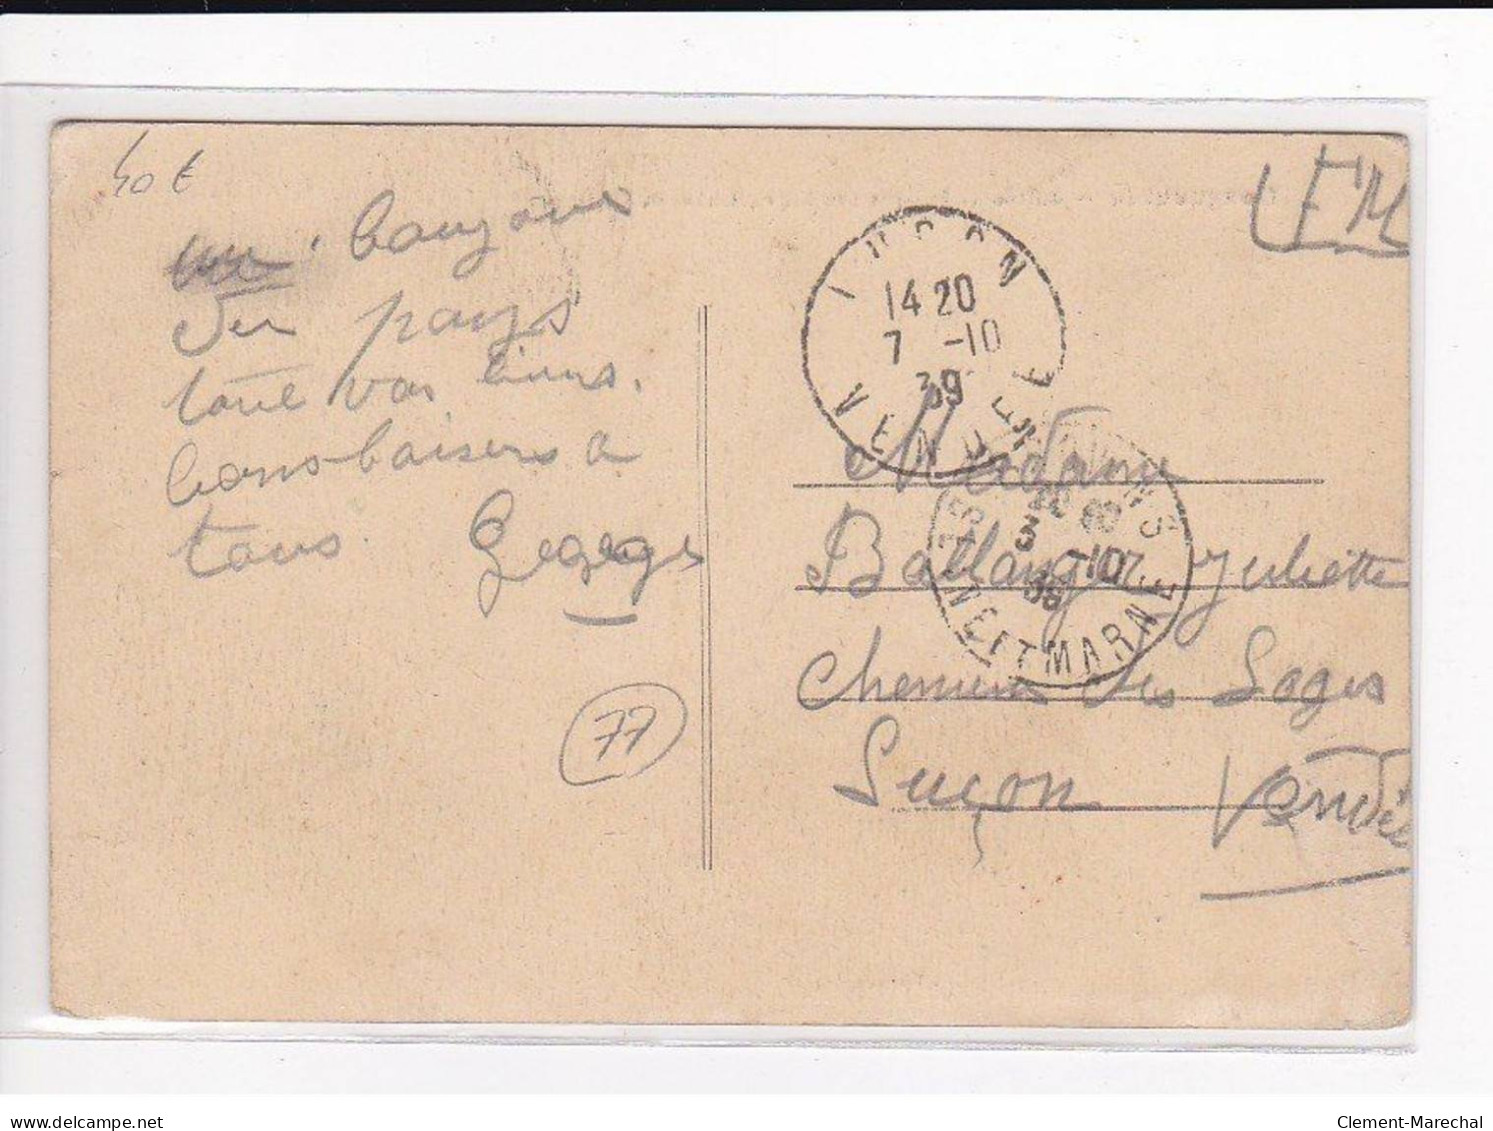 40 €
FM
un bonjour
du pays
tout va biens.
bons baisers a
tous. Gegege
77
LUCON
14 20
7 -10
39
VENDEE
3 -10
39
SEINE ET MARNE
Madame
Ballanger Juliette
Chemin des Sages
Luçon Vendée
delcampe.net
Clement-Marechal